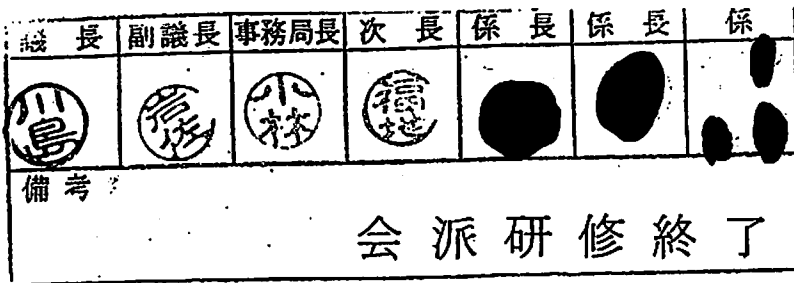 議長 副議長 事務局長 次長 係長 係長 係
川島 岩佐 小林 福越
備考
会派研修終了